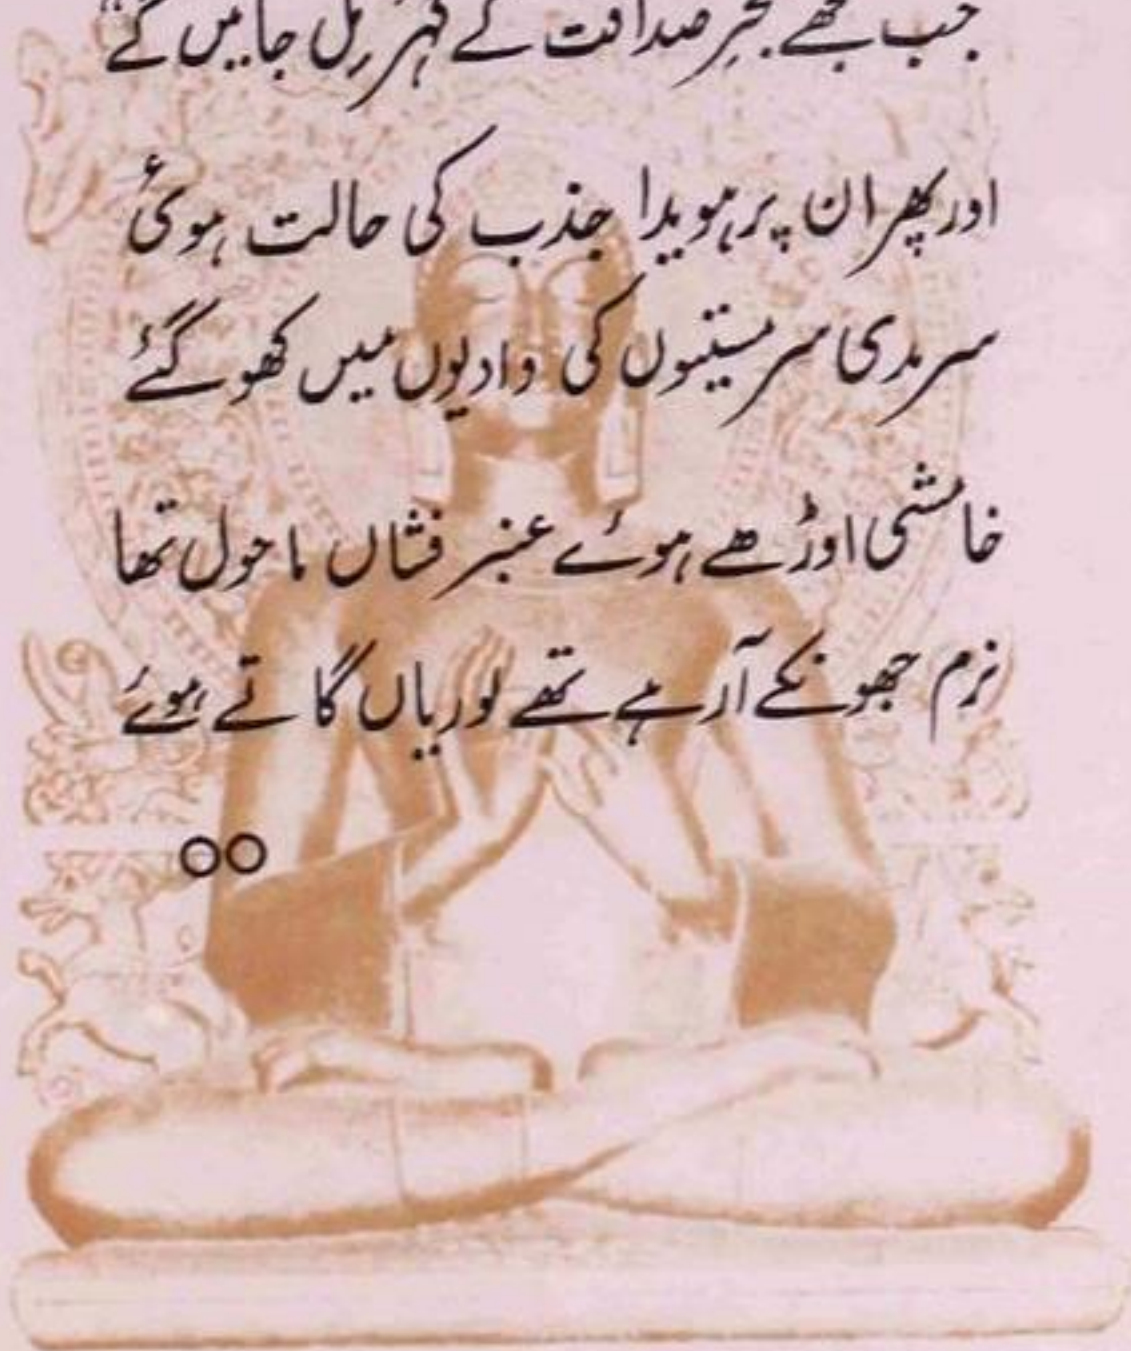 جب مجھے بحرِ صداقت کے گہر مل جائیں گے"
اور پھر ان پر ہویدا جذب کی حالت ہوئی
سرمدی سرمستیوں کی وادیوں میں کھو گئے
خامشی اوڑھے ہوئے عنبر فشاں ماحول تھا
نرم جھونکے آرہے تھے لوریاں گاتے ہوئے
○○